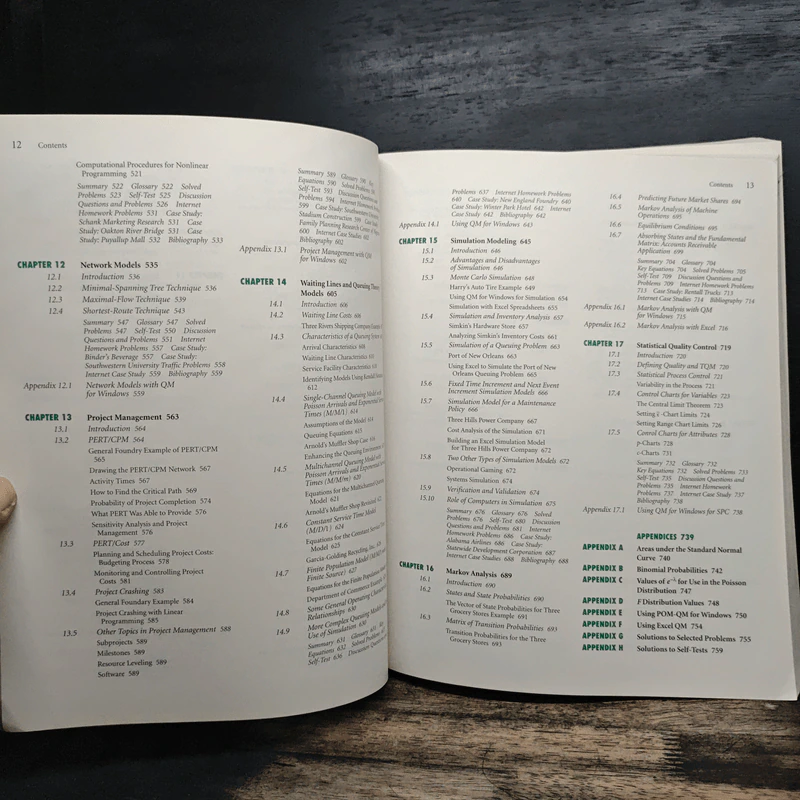 12 Contents
Computational Procedures for Nonlinear
Programming 521
Summary 522 Glossary 522 Solved
Problems 523 Self-Test 525 Discussion
Questions and Problems 526 Internet
Homework Problems 531 Case Study:
Schank Marketing Research 531 Case
Study: Oakton River Bridge 531 Case
Study: Puyallup Mall 532 Bibliography 533
CHAPTER 12 Network Models 535
12.1 Introduction 536
12.2 Minimal-Spanning Tree Technique 536
12.3 Maximal-Flow Technique 539
12.4 Shortest-Route Technique 543
Summary 547 Glossary 547 Solved
Problems 547 Self-Test 550 Discussion
Questions and Problems 551 Internet
Homework Problems 557 Case Study:
Binder's Beverage 557 Case Study:
Southwestern University Traffic Problems 558
Internet Case Study 559 Bibliography 559
Appendix 12.1 Network Models with QM
for Windows 559
CHAPTER 13 Project Management 563
13.1 Introduction 564
13.2 PERT/CPM 564
General Foundry Example of PERT/CPM
565
Drawing the PERT/CPM Network 567
Activity Times 567
How to Find the Critical Path 569
Probability of Project Completion 574
What PERT Was Able to Provide 576
Sensitivity Analysis and Project
Management 576
13.3 PERT/Cost 577
Planning and Scheduling Project Costs:
Budgeting Process 578
Monitoring and Controlling Project
Costs 581
13.4 Project Crashing 583
General Foundry Example 584
Project Crashing with Linear
Programming 585
13.5 Other Topics in Project Management 588
Subprojects 589
Milestones 589
Resource Leveling 589
Software 589
Summary 589 Glossary 590 Key
Equations 590 Solved Problems
Self-Test 593 Discussion Questions and
Problems 594 Internet Homework
599 Case Study: Southwestern
Stadium Construction 599
Family Planning Research Center
600 Internet Case Studies
Bibliography 602
Appendix 13.1 Project Management with QM
for Windows 602
CHAPTER 14 Waiting Lines and Queuing Theory
Models 605
14.1 Introduction 606
14.2 Waiting Line Costs 606
Three Rivers Shipping Company
14.3 Characteristics of a Queuing System
Arrival Characteristics 608
Waiting Line Characteristics
Service Facility Characteristics
Identifying Models Using Kendall
612
14.4 Single-Channel Queuing Model with
Poisson Arrivals and Exponential
Times (M/M/1) 614
Assumptions of the Model 614
Queuing Equations 615
Arnold's Muffler Shop Case
Enhancing the Queuing Environment
14.5 Multichannel Queuing Model with
Poisson Arrivals and Exponential
Times (M/M/m) 620
Equations for the Multichannel
Model 621
Arnold's Muffler Shop Revisited
14.6 Constant Service Time Model
(M/D/1) 624
Equations for the Constant Service
Model 625
Garcia-Golding Recycling, Inc.
14.7 Finite Population Model
Finite Source) 627
Equations for the Finite Population
Department of Commerce Example
14.8 Some General Operating Characteristic
Relationships 630
14.9 More Complex Queuing Models and
Use of Simulation 630
Summary 631 Glossary 631 Key
Equations 632 Solved Problems
Self-Test 636 Discussion Questions
Contents 13
Problems 637 Internet Homework Problems
640 Case Study: New England Foundry 640
Case Study: Winter Park Hotel 642 Internet
Case Study 642 Bibliography 642
Appendix 14.1 Using QM for Windows 643
CHAPTER 15 Simulation Modeling 645
15.1 Introduction 646
15.2 Advantages and Disadvantages
of Simulation 646
15.3 Monte Carlo Simulation 648
Harry's Auto Tire Example 649
Using QM for Windows for Simulation 654
Simulation with Excel Spreadsheets 655
15.4 Simulation and Inventory Analysis 657
Simkin's Hardware Store 657
Analyzing Simkin's Inventory Costs 661
15.5 Simulation of a Queuing Problem 663
Port of New Orleans 663
Using Excel to Simulate the Port of New
Orleans Queuing Problem 665
15.6 Fixed Time Increment and Next Event
Increment Simulation Models 666
15.7 Simulation Model for a Maintenance
Policy 666
Three Hills Power Company 667
Cost Analysis of the Simulation 671
Building an Excel Simulation Model
for Three Hills Power Company 672
15.8 Two Other Types of Simulation Models 672
Operational Gaming 672
Systems Simulation 674
15.9 Verification and Validation 674
15.10 Role of Computers in Simulation 675
Summary 676 Glossary 676 Solved
Problems 676 Self-Test 680 Discussion
Questions and Problems 681 Internet
Homework Problems 686 Case Study:
Alabama Airlines 686 Case Study:
Statewide Development Corporation 687
Internet Case Studies 688 Bibliography 688
CHAPTER 16 Markov Analysis 689
16.1 Introduction 690
16.2 States and State Probabilities 690
The Vector of State Probabilities for Three
Grocery Stores Example 691
16.3 Matrix of Transition Probabilities 693
Transition Probabilities for the Three
Grocery Stores 693
16.4 Predicting Future Market Shares 694
16.5 Markov Analysis of Machine
Operations 695
16.6 Equilibrium Conditions 695
16.7 Absorbing States and the Fundamental
Matrix: Accounts Receivable
Application 699
Summary 704 Glossary 704
Key Equations 704 Solved Problems 705
Self-Test 709 Discussion Questions and
Problems 709 Internet Homework Problems
713 Case Study: Rentall Trucks 713
Internet Case Studies 714 Bibliography 714
Appendix 16.1 Markov Analysis with QM
for Windows 715
Appendix 16.2 Markov Analysis with Excel 716
CHAPTER 17 Statistical Quality Control 719
17.1 Introduction 720
17.2 Defining Quality and TQM 720
17.3 Statistical Process Control 721
Variability in the Process 721
17.4 Control Charts for Variables 723
The Central Limit Theorem 723
Setting x̄-Chart Limits 724
Setting Range Chart Limits 726
17.5 Control Charts for Attributes 728
p-Charts 728
c-Charts 731
Summary 732 Glossary 732
Key Equations 732 Solved Problems 733
Self-Test 735 Discussion Questions and
Problems 735 Internet Homework
Problems 737 Internet Case Study 737
Bibliography 738
Appendix 17.1 Using QM for Windows for SPC 738
APPENDICES 739
APPENDIX A Areas under the Standard Normal
Curve 740
APPENDIX B Binomial Probabilities 742
APPENDIX C Values of e⁻λ for Use in the Poisson
Distribution 747
APPENDIX D F Distribution Values 748
APPENDIX E Using POM-QM for Windows 750
APPENDIX F Using Excel QM 754
APPENDIX G Solutions to Selected Problems 755
APPENDIX H Solutions to Self-Tests 759